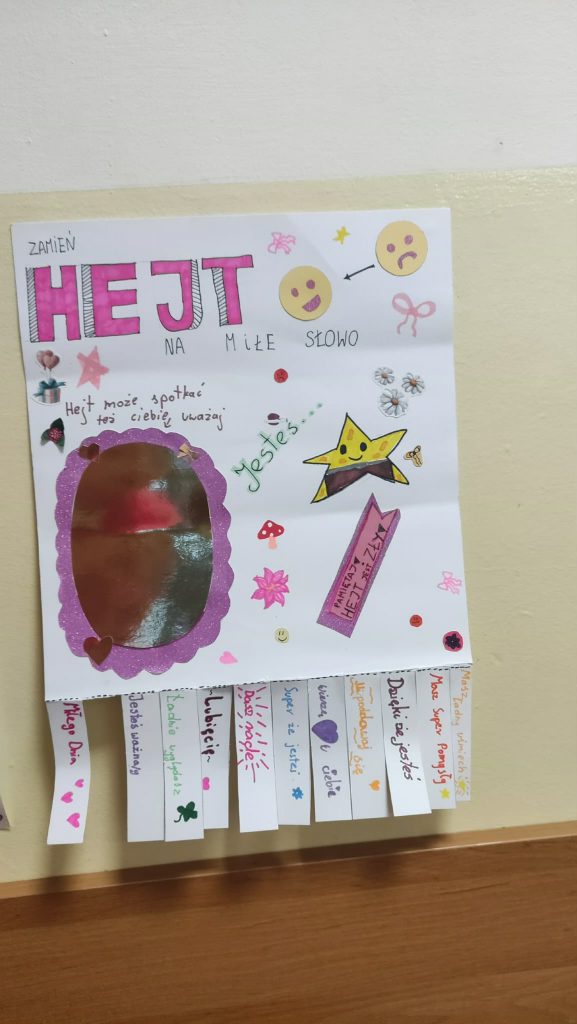 ZAMIEŃ
HEJT
NA MIŁE SŁOWO
Hejt może spotkać
też ciebie, uważaj
Jesteś...
PAMIĘTAJ
HEJT jest ZŁY
Miłego Dnia
Jesteś ważna/y
Ładnie wyglądasz
~Lubięcię~
Dasz radę
Super że jesteś
wierzę w ciebie
Nie poddawaj się
Dzięki że jesteś
Masz Super Pomysły
Masz ładny uśmiech